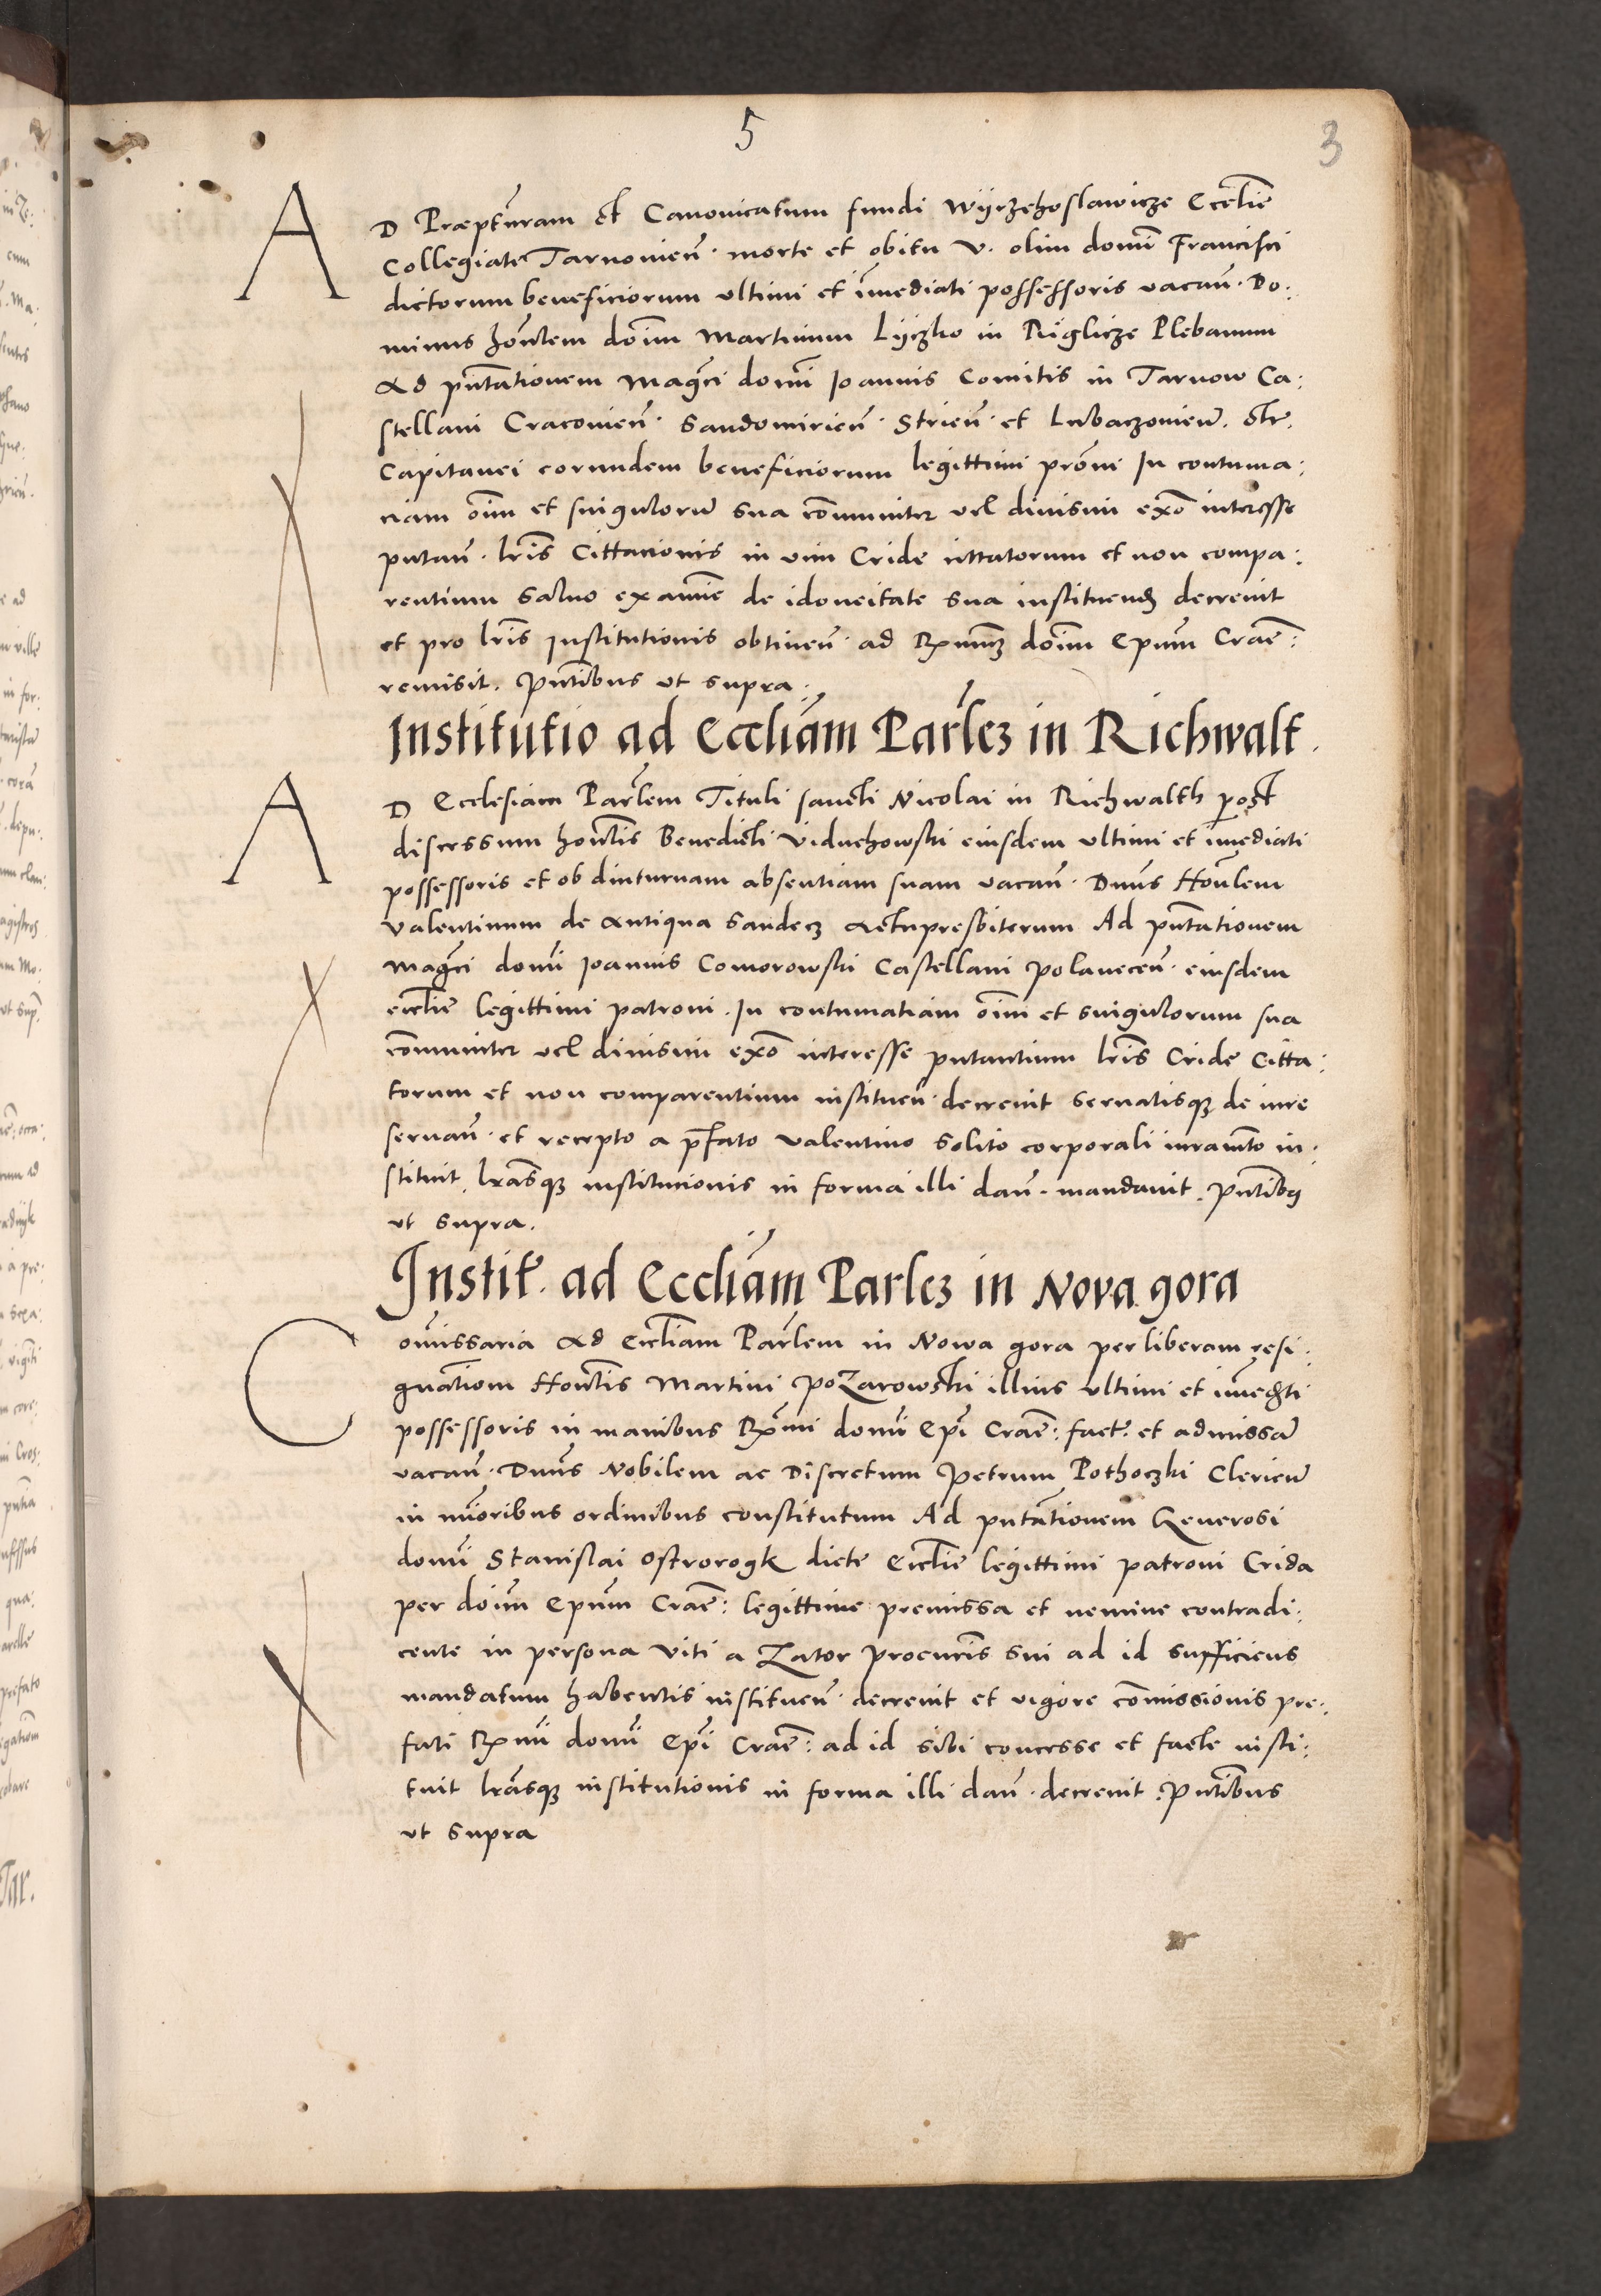 5
3
AD Præpturam et Canonicatum fundi Wÿrzchoslawicze Eccłie
Collegiate Tarnovieñ· morte et obitu V. olim domī Francisci
dictorum beneficiorum ultimi et īmediati possessoris vacañ· Do:
minus hońlem doīm Martinum Lÿczko in Rÿglicze Plebanum
Ad pñtationem Magci domī Joannis Comitis in Tarnow Ca:
stellani Cracovieñ· Sandomirieñ· Strieñ· et Lubaczovieñ. etc.
Capitanei eorundem beneficiorum legittimi prōni In contuma:
ciam oīm et singulorū sua cōmuniter vel divisim exō interesse
putañ· lrīs Cittacionis in vim Cride cittatorum et non compa:
rentium Salvo examine de idoneitate sua instituenđ decrevit
et pro lrīs Institutionis obtineñ· ad Rxmumȝ doīm Epum Craē:
remisit. Pñtibus ut supra:
Institutio ad Eccliām Parłeȝ in Richwalt.
AD Ecclesiam Parłem Tituli sancti Nicolai in Richwalth post
discessum hońtis Benedicti Viduchowski eiusdem ultimi et īmediati
possessoris et ob diuturnam absentiam suam vacañ· Dnūs Hońlem
Valentinum de Antiqua Sandecȝ Archipresbiterum Ad pñtationem
Magci domī Joannis Comorowski Castellani Polaneceñ· eiusdem
eccłie legittimi patroni. In contumatiam oīm et singulorum sua
cōmuniter vel divisim exō interesse putantium lrīs Cride Citta:
torum et non comparentium institueñ· decrevit servatisqȝ de iure
servañ· et recepto a pfato Valentino solito corporali iuramto in:
stituit. lrasqȝ institucionis in forma illi dañ· mandavit. Pñtibus
ut supra.
Instit. ad Eccliām Parleȝ in Nova gora
Comissaria Ad Eccłiam Parłem in Nowa gora per liberam resi:
gnatiom Hońtis Martini Pozarowski illius ultimi et īmedti
possessoris in manibus Rxmi domī Epī Craē: fact. et admissā
vacañ· Dnūs Nobilem ac Discretum Petrum Pothoczki Clericū
in mīoribus ordinibus constitutum Ad putātionem Generosi
domī Stanislai Ostrorogk dicte Eccłie legittimi patroni Crida
per doīm Epum Craē: legittime premissa et nemine contradi:
cente in persona Viti a Zator Procuris sui ad id sufficiens
mandatum habentis instituen· decrevit et vigore cōmissionis pre:
fati Rxmi domī Epī Craē: ad id sibi concesse et facte insti:
tuit lrasqȝ institutionis in forma illi dañ· decrevit. Pñtibus
ut supra